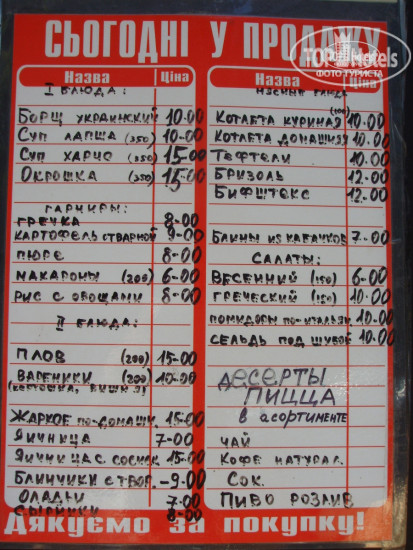 СЬОГОДНІ У ПРОДАЖУ
TOP Hotels
ФОТО ТУРИСТА
Назва Ціна
I БЛЮДА:
БОРЩ УКРАИНСКИЙ 10-00
СУП ЛАПША (350) 10-00
СУП ХАРЧО (350) 15-00
ОКРОШКА (350) 15-00
ГАРНИРЫ:
ГРЕЧКА 8-00
КАРТОФЕЛЬ ОТВАРНОЙ 9-00
ПЮРЕ 8-00
МАКАРОНЫ (200) 6-00
РИС С ОВОЩАМИ 8-00
II БЛЮДА:
ПЛОВ (200) 15-00
ВАРЕНИКИ (200) 10-00
(КАРТОШКА, ВИШНЯ)
ЖАРКОЕ ПО-ДОМАШН. 15-00
ЯИЧНИЦА 7-00
ЯИЧНИЦА С СОСИСК. 15-00
БЛИНЧИКИ С ТВОР. -9-00
ОЛАДЬИ 7-00
СЫРНИКИ 8-00
Назва Ціна
МЯСНЫЕ БЛЮДА
КОТЛЕТА КУРИНАЯ (100) 10.00
КОТЛЕТА ДОМАШНЯЯ 10.00
ТЕФТЕЛИ 10.00
БРИЗОЛЬ 12-00
БИФШТЕКС 12-00
БЛИНЫ ИЗ КАБАЧКОВ 7-00
САЛАТЫ:
ВЕСЕННИЙ (150) 6-00
ГРЕЧЕСКИЙ (150) 10.00
ПОМИДОРЫ ПО-ИТАЛЬЯН 10.00
СЕЛЬДЬ ПОД ШУБОЙ 10-00
ДЕСЕРТЫ
ПИЦЦА
В АСОРТИМЕНТЕ
ЧАЙ
КОФЕ НАТУРАЛ.
СОК.
ПИВО РОЗЛИВ
Дякуємо за покупку!